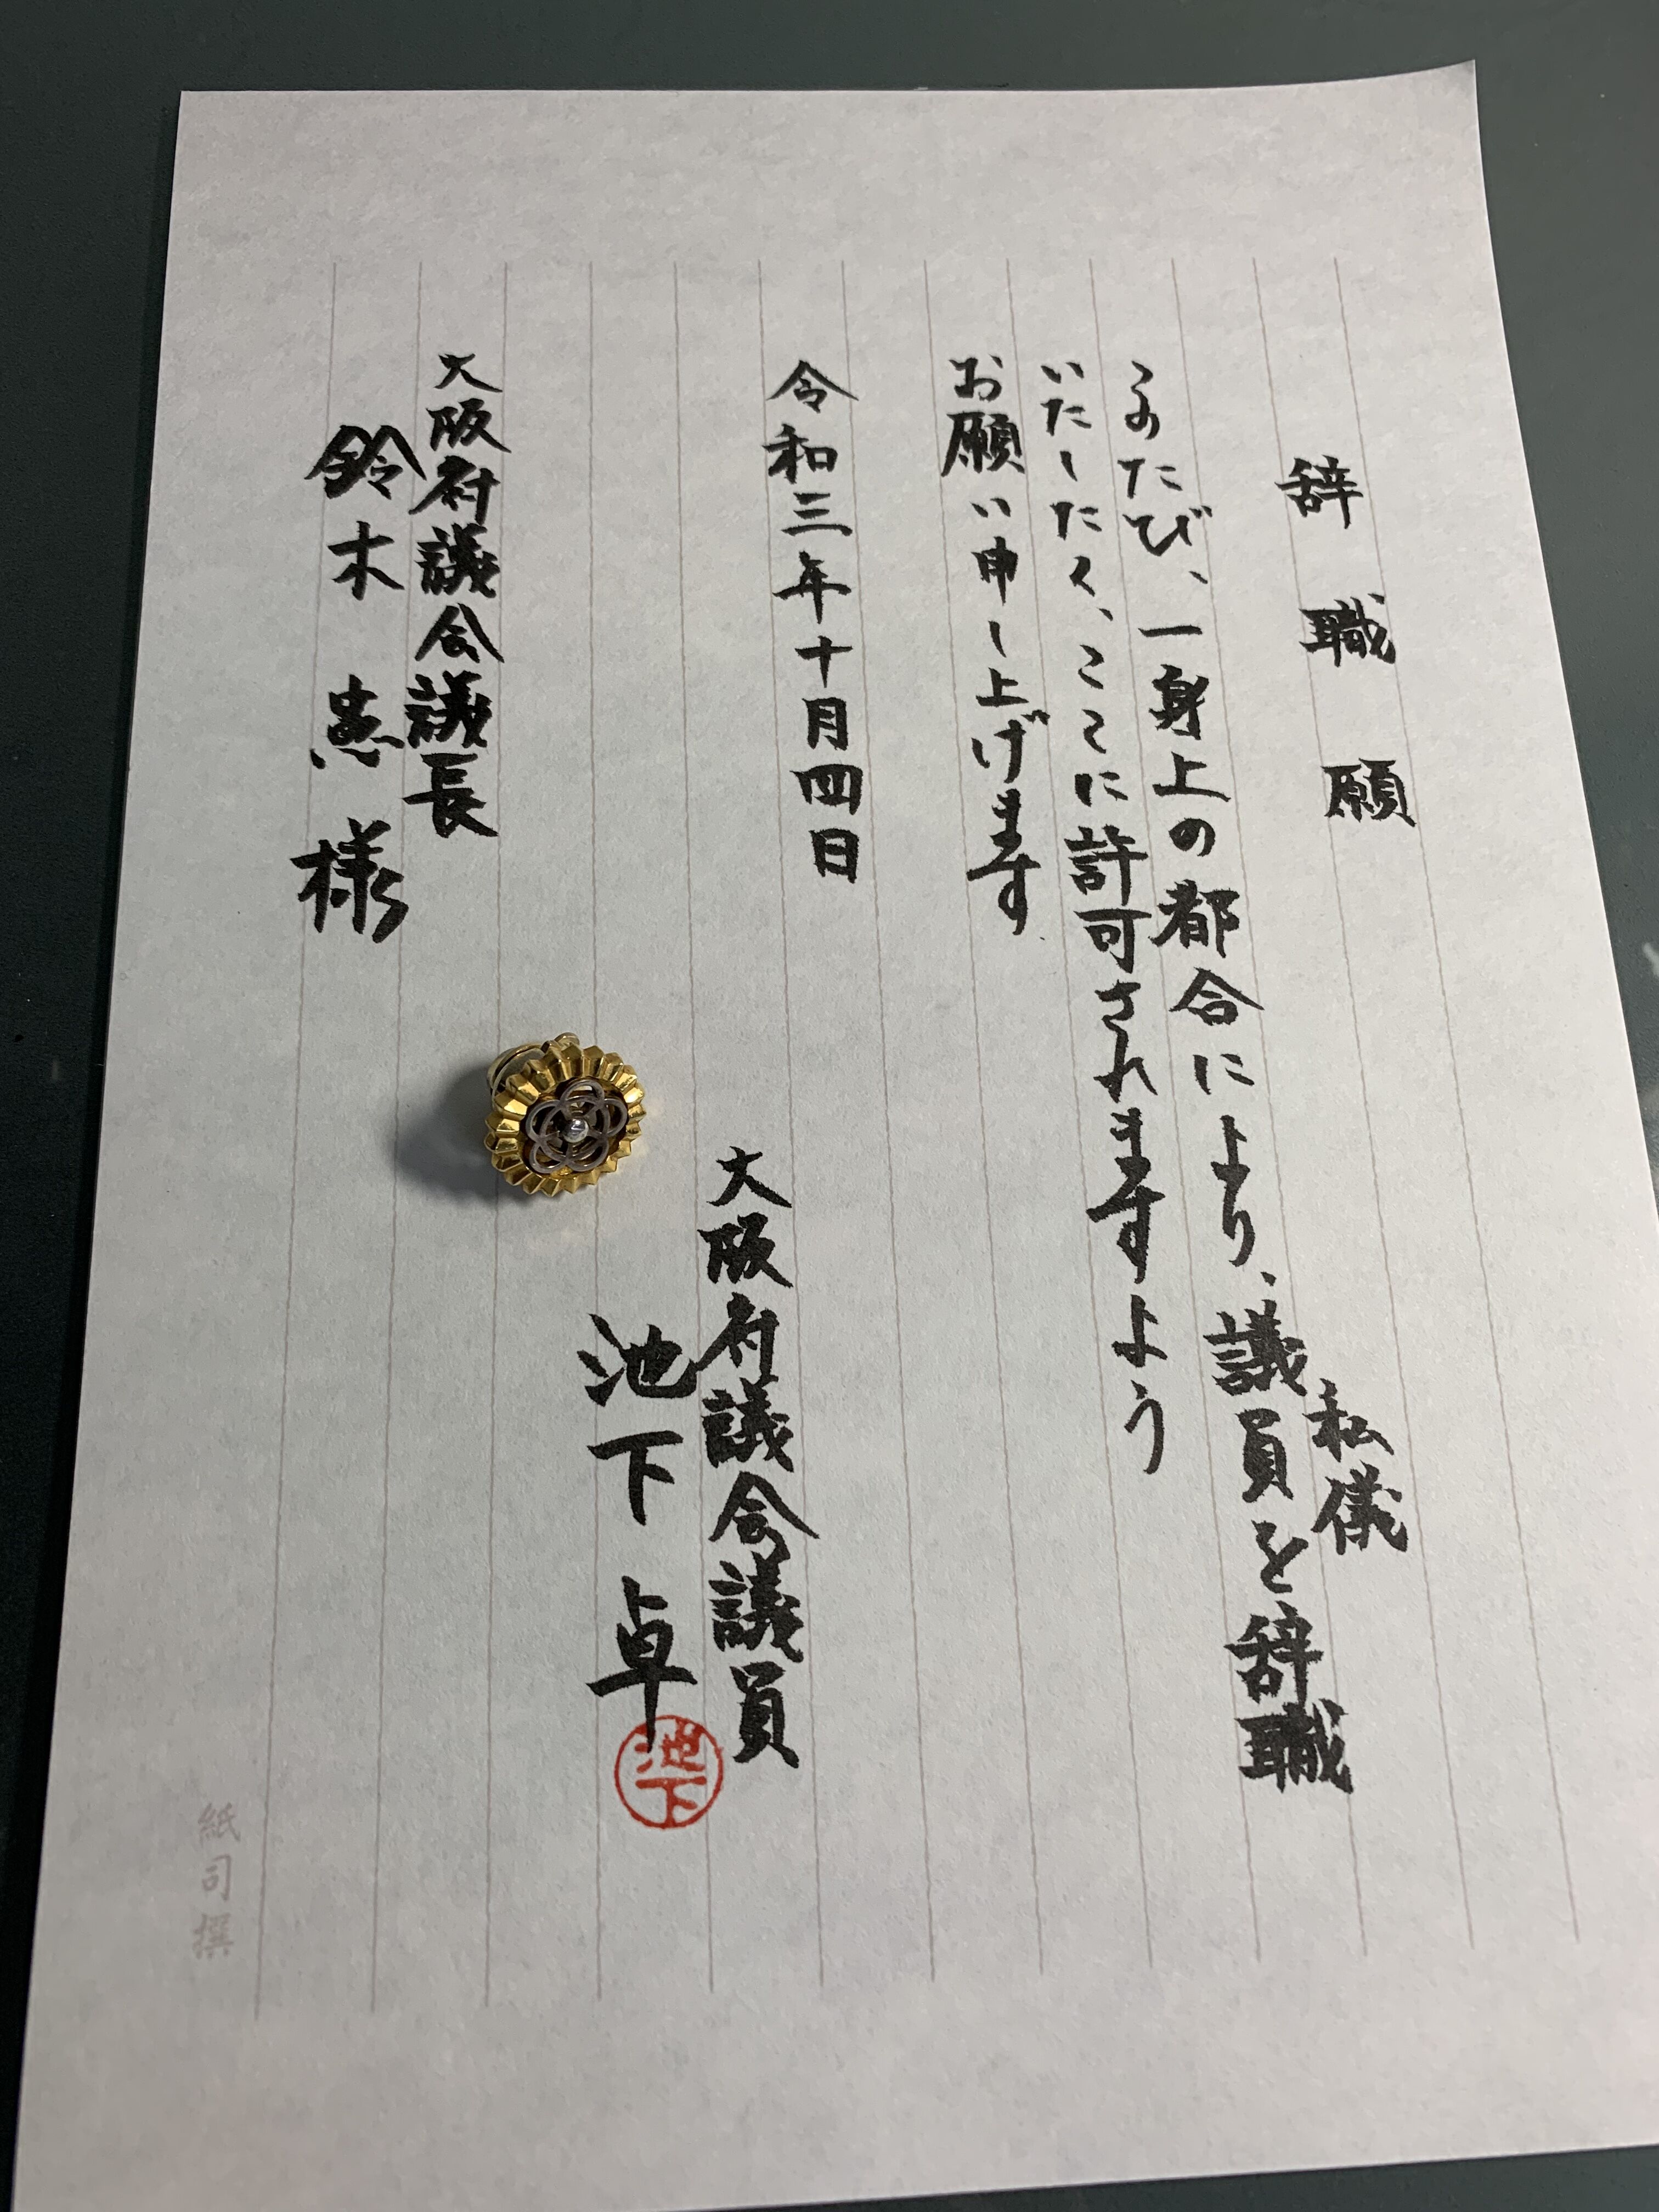 辞職願
私儀
このたび、一身上の都合により、議員を辞職
いたしたく、ここに許可されますよう
お願い申し上げます
令和三年十月四日
大阪府議会議員
池下卓
池下
大阪府議会議長
鈴木憲様
紙司撰